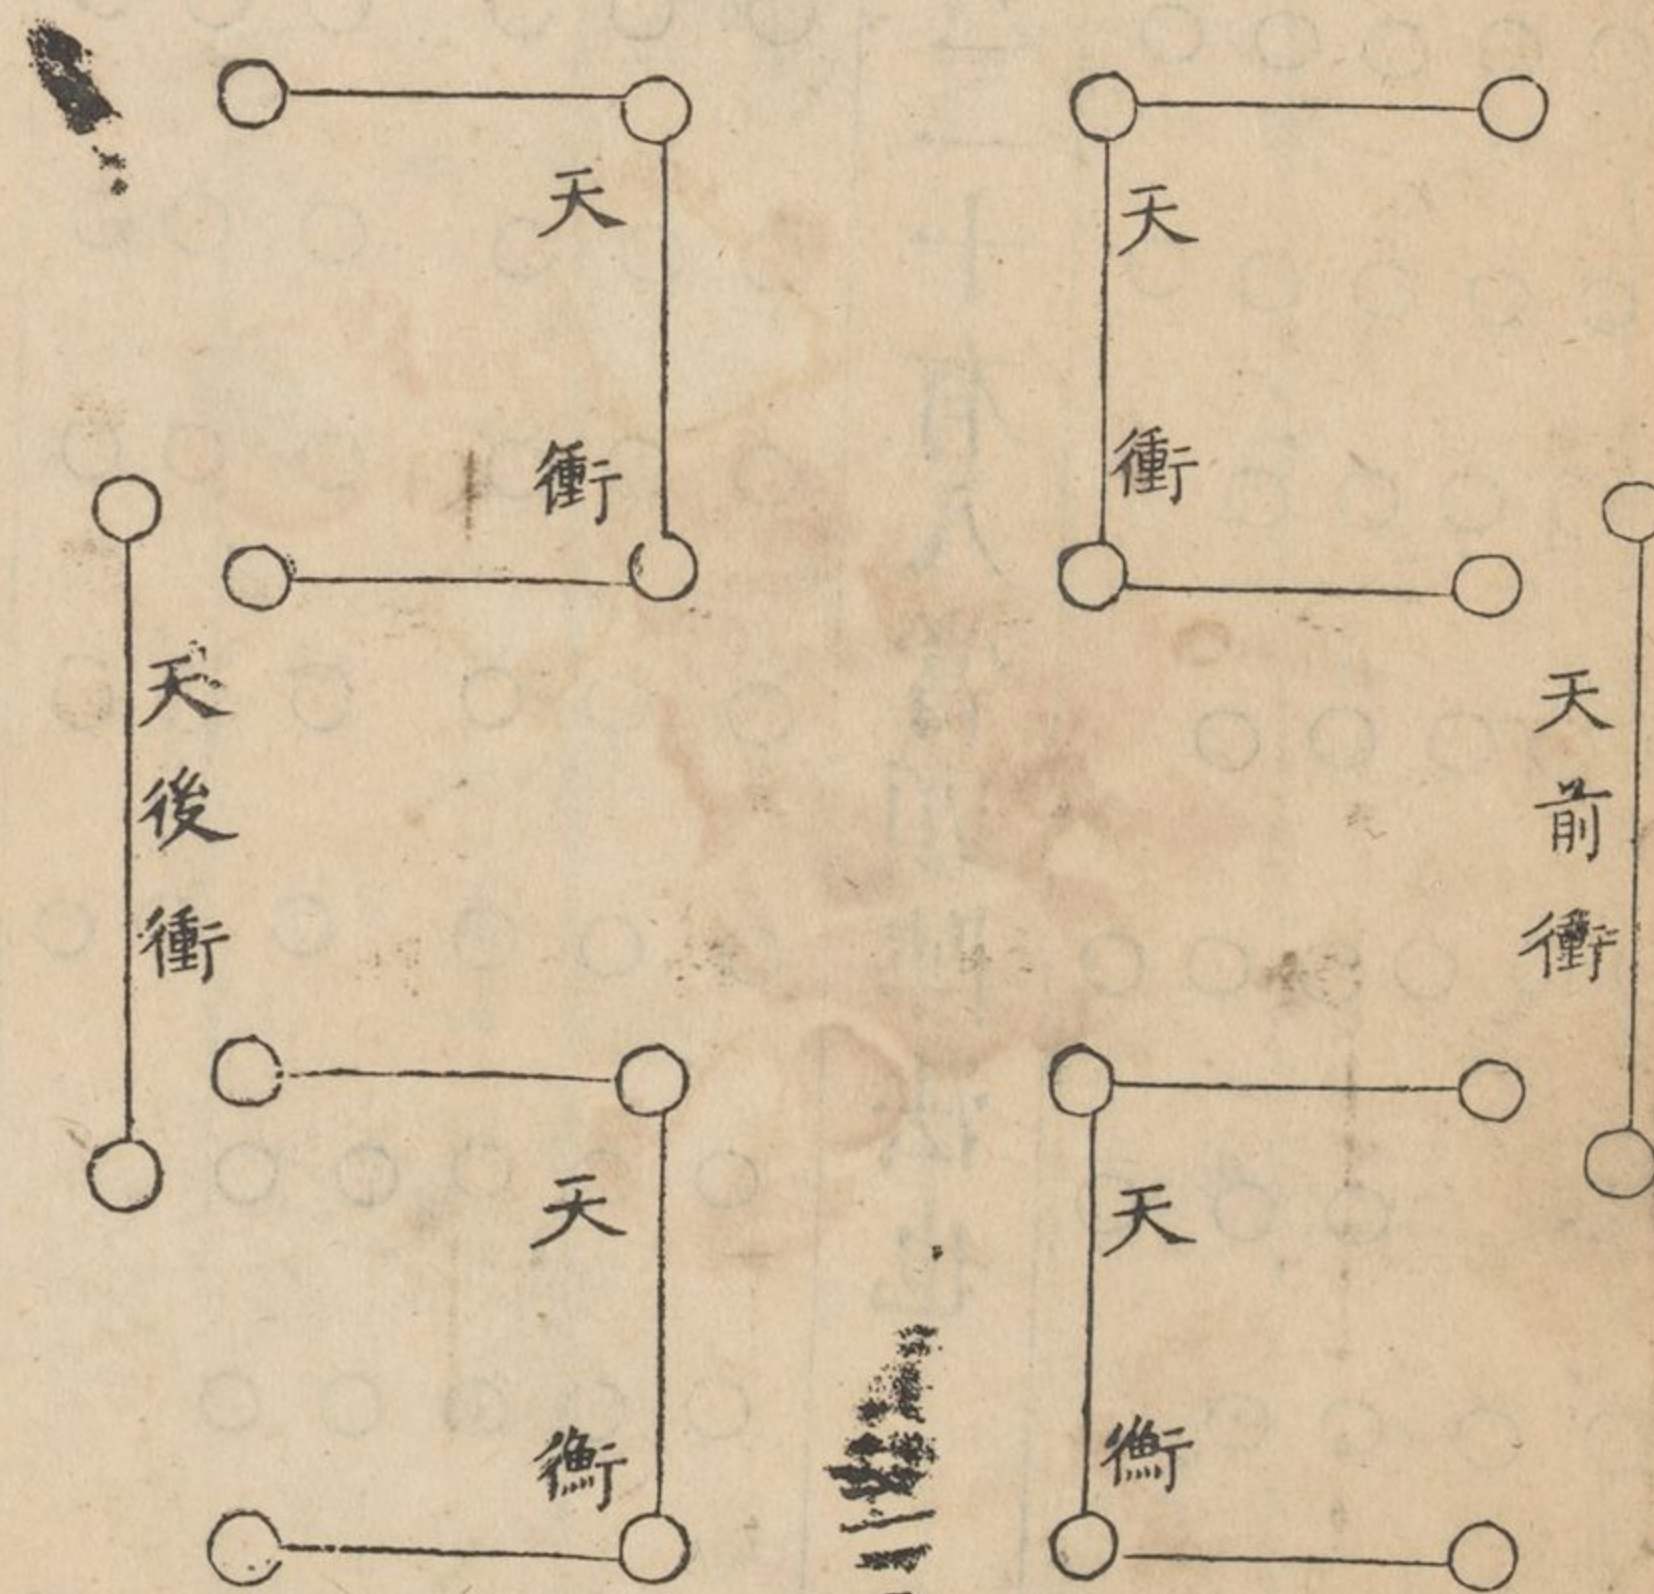 天前衝
天衝
天衡
天衝
天衡
天後衝